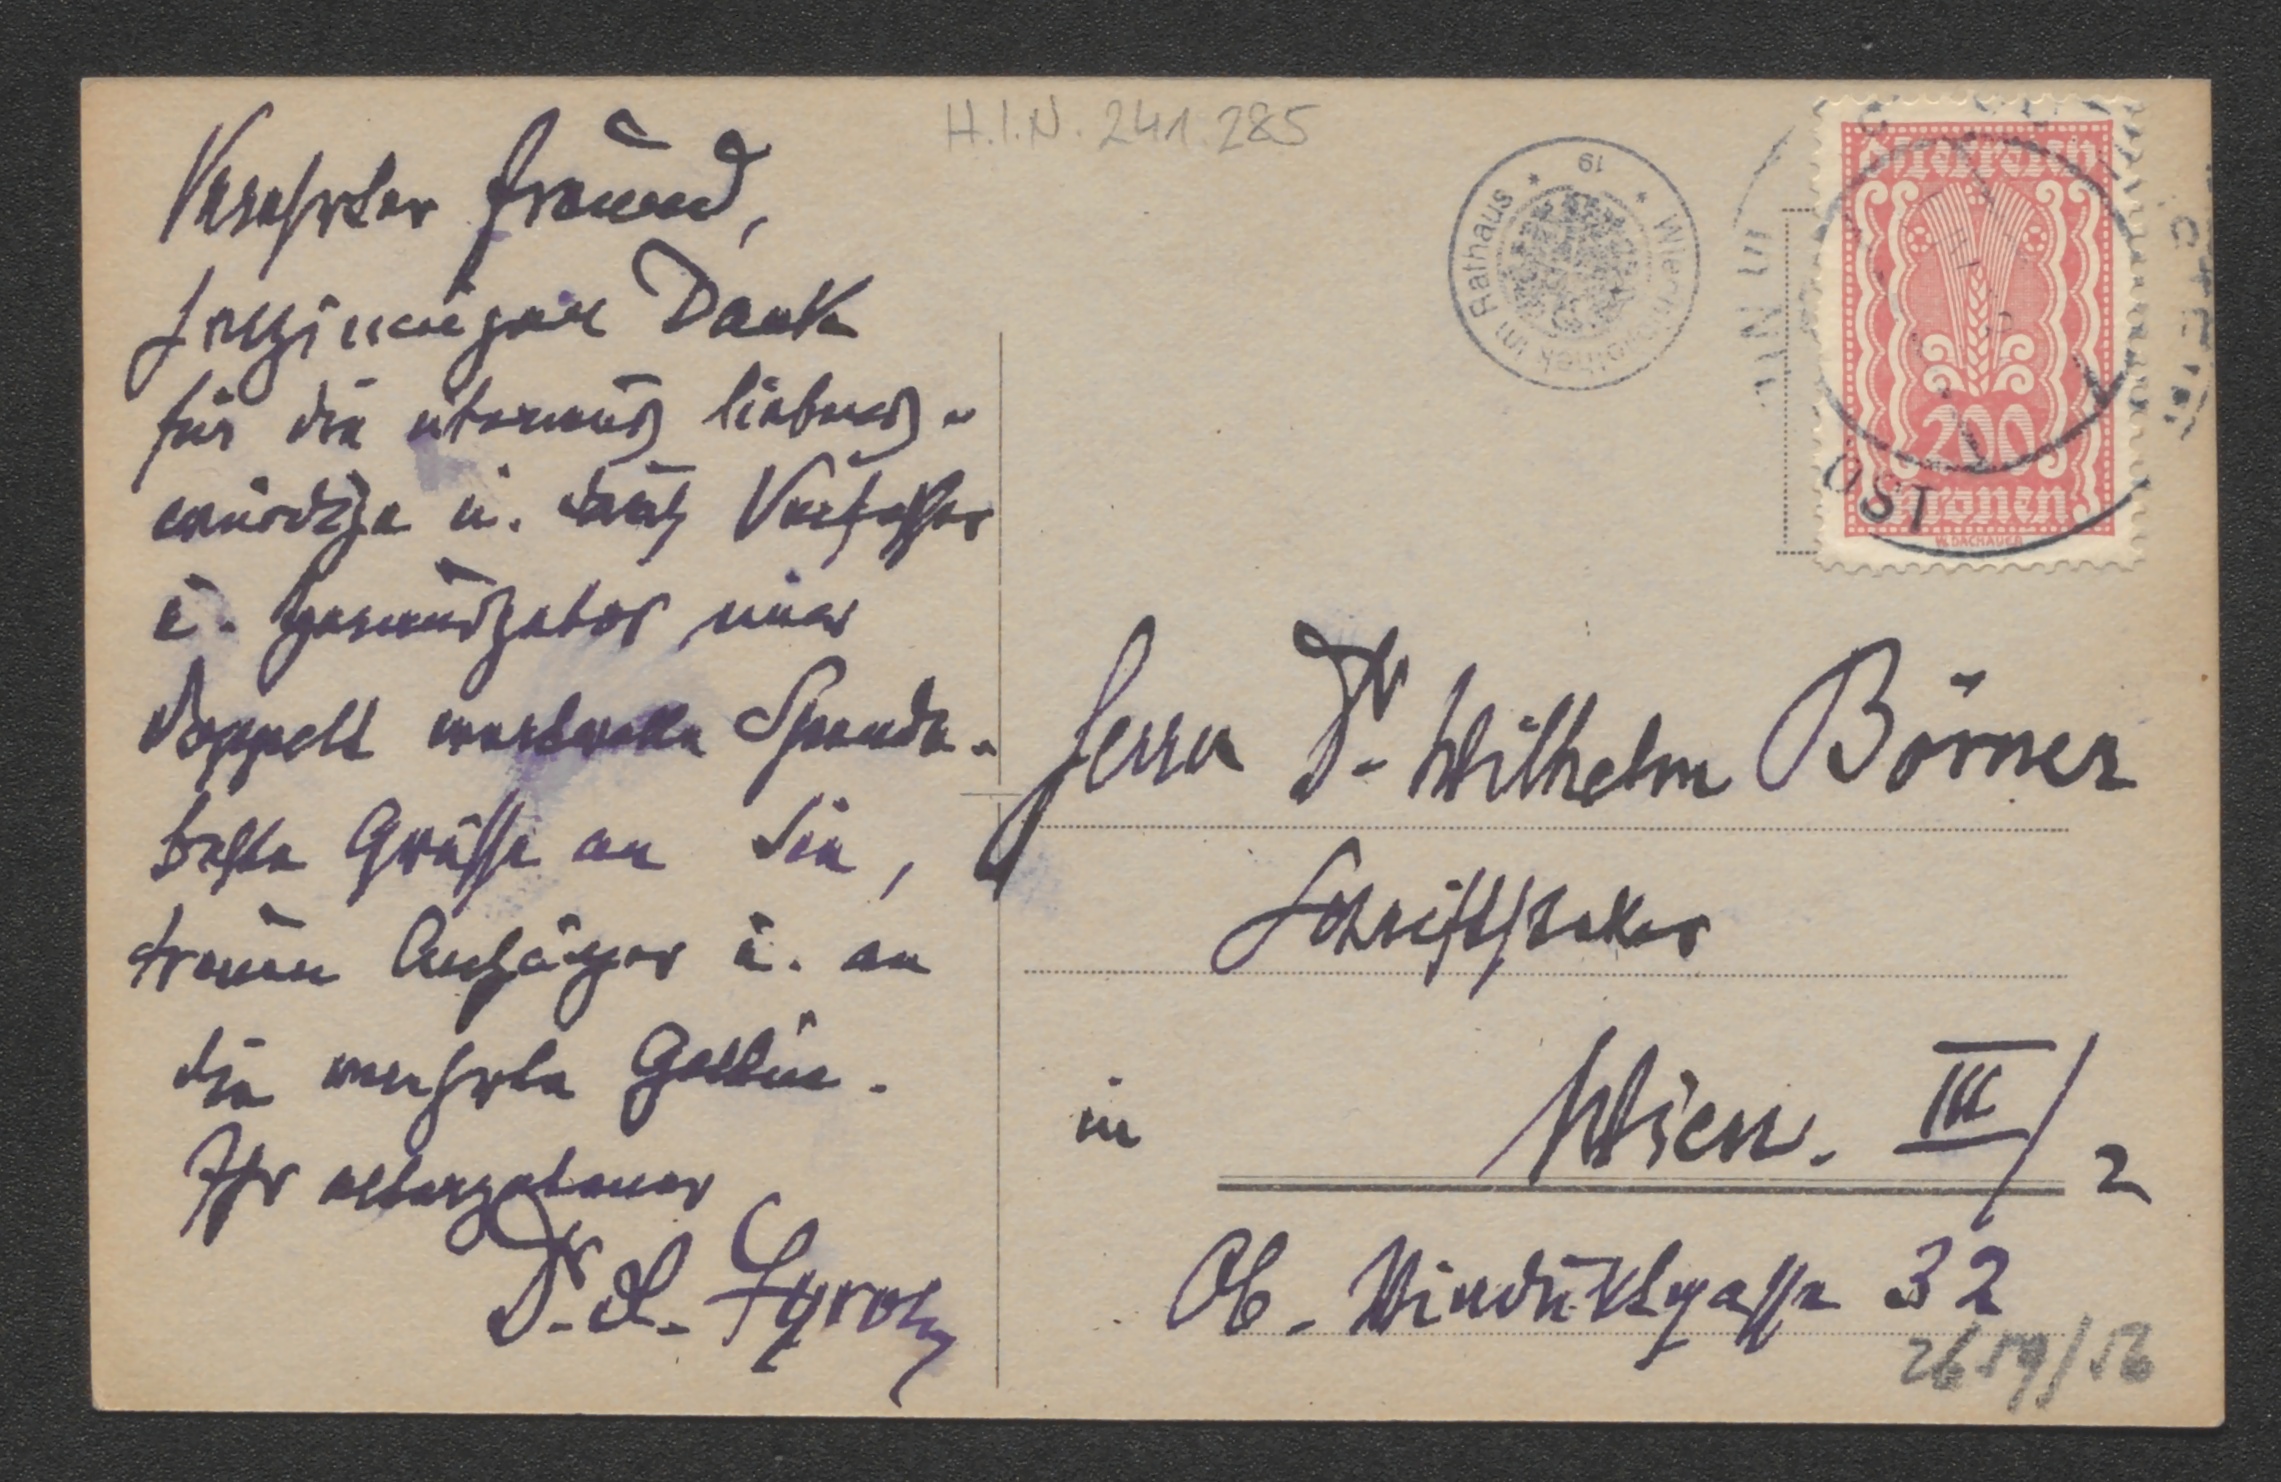 H.I.N. 241.285
Verehrter Freund,
herzinnigen Dank
für die überaus liebens-
würdige u. durch Verfasser
u. Herausgeber einer
doppelt wertvolle Spende.
Beste Grüsse an Sie,
treuen Anhänger u. an
die verehrte Gattin.
Ihr altergebener
Dr. S.
Wienbibliothek im Rathaus
19
Österreich
200
Kronen
W. DACHAUER
WIEN III
OST
Herrn Dr. Wilhelm Börner
Schriftsteller
in Wien. III/2
Ob. Viaduktgasse 32
2659/56